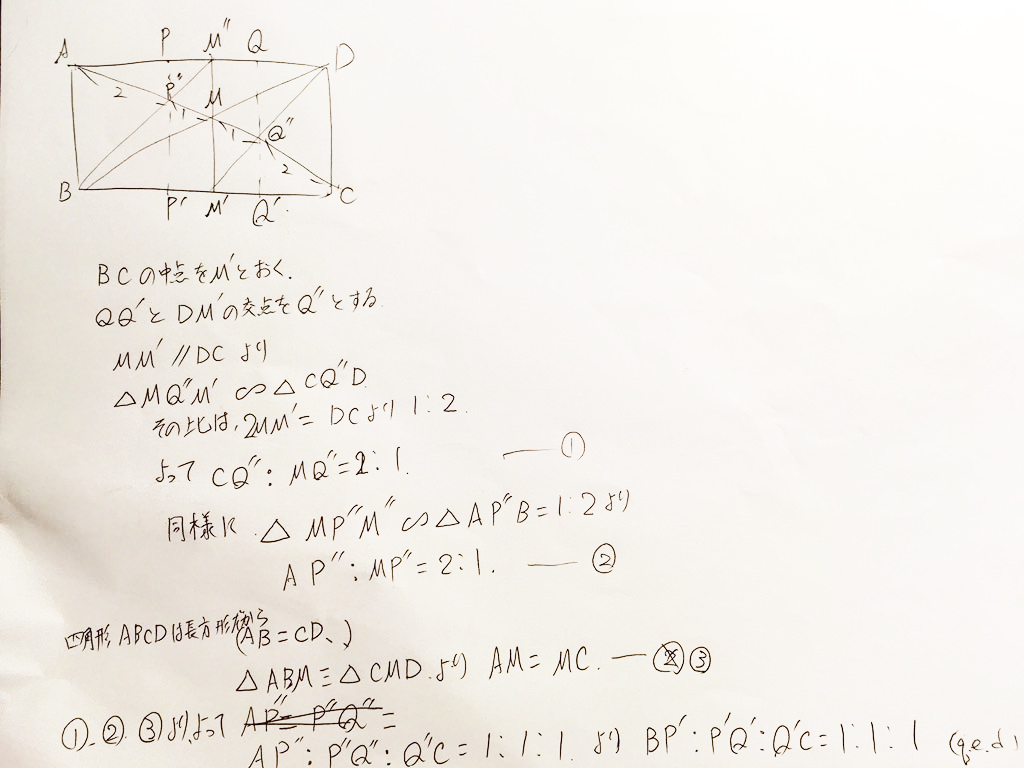 A P M'' Q D
P''
2 1 M
1 Q''
2
B P' M' Q' C
BCの中点をM'とおく.
QQ'とDM'の交点をQ''とする
MM' // DC より
△MQ''M' ∽ △CQ''D
その比は, 2MM' = DCより 1:2.
よって CQ'' : MQ'' = 2:1. ①
同様に △MP''M'' ∽ △AP''B = 1:2より
AP'' : MP'' = 2:1. ②
四角形ABCDは長方形だから
(AB = CD、)
△ABM ≡ △CMD より AM = MC. ③
①. ②. ③より,よって AP'' = P''Q'' =
AP'' : P''Q'' : Q''C = 1:1:1. より BP' : P'Q' : Q'C = 1:1:1 (q.e.d)